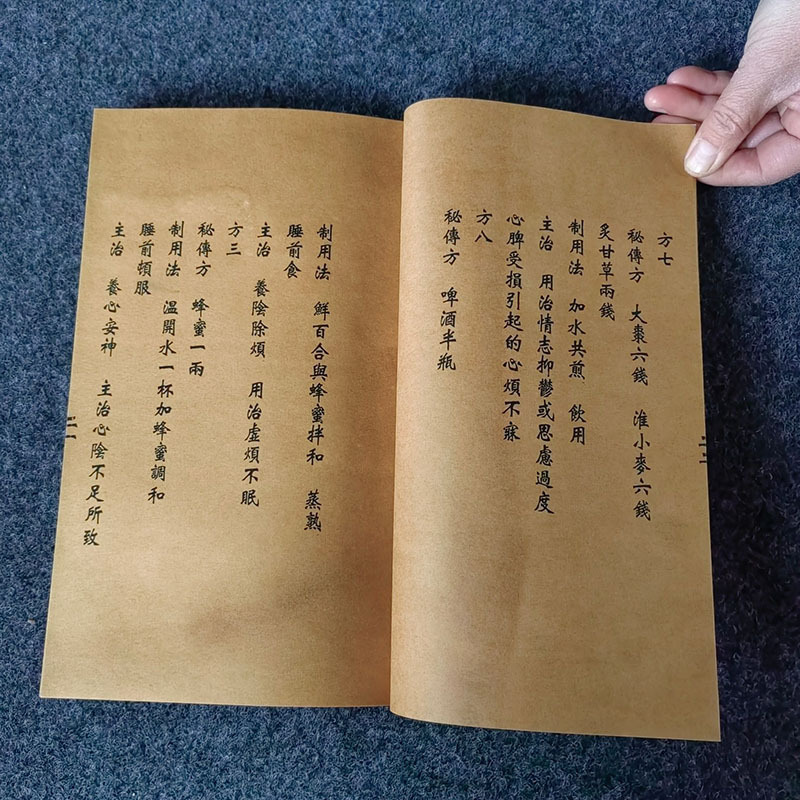 方七
秘傳方 大棗六錢 淮小麥六錢
炙甘草兩錢
制用法 加水共煎 飲用
主治 用治情志抑鬱或思慮過度
心脾受損引起的心煩不寐
方八
秘傳方 啤酒半瓶
制用法 鮮百合與蜂蜜拌和 蒸熟
睡前食
主治 養陰除煩 用治虛煩不眠
方三
秘傳方 蜂蜜一兩
制用法 溫開水一杯加蜂蜜調和
睡前頓服
主治 養心安神 主治心陰不足所致